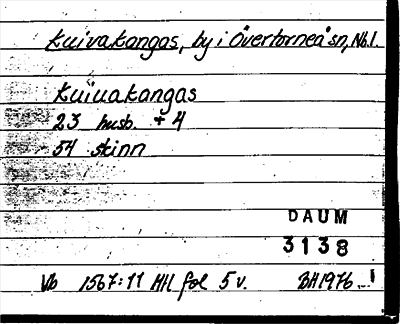 Kuivakangas, by i Övertorneå sn, Nb.l.
Kuiuakangas
23 husb. + 4
54 skinn
DAUM
3138
Vb 1567:11 MH fol 5 v. BH 1976